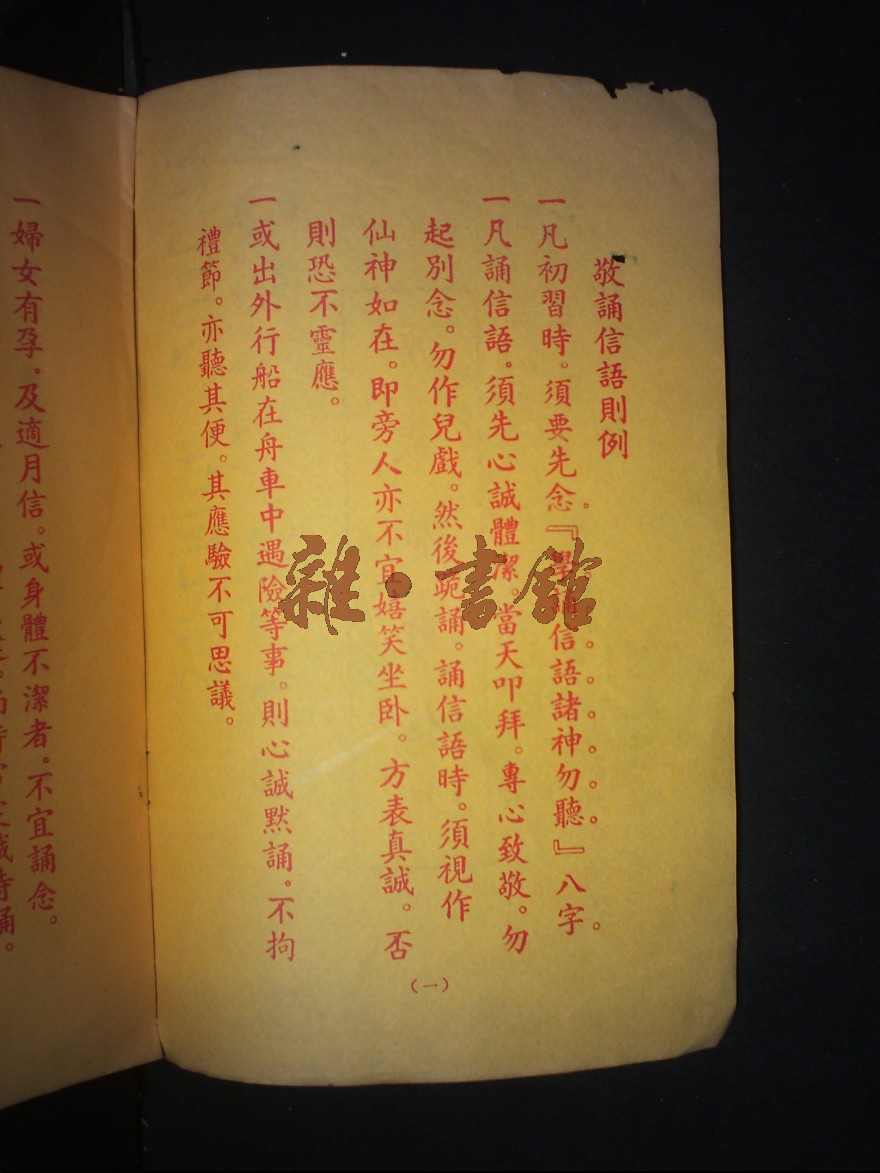 敬誦信語則例
一凡初習時。須要先念『學誦信語諸神勿聽。』八字。
一凡誦信語。須先心誠體潔。當天叩拜。專心致敬。勿
起別念。勿作兒戲。然後跪誦。誦信語時。須視作
仙神如在。即旁人亦不宜嬉笑坐卧。方表真誠。否
則恐不靈應。
一或出外行船在舟車中遇險等事。則心誠默誦。不拘
禮節。亦聽其便。其應驗不可思議。
(一)
一婦女有孕。及適月信。或身體不潔者。不宜誦念。
雜·書館